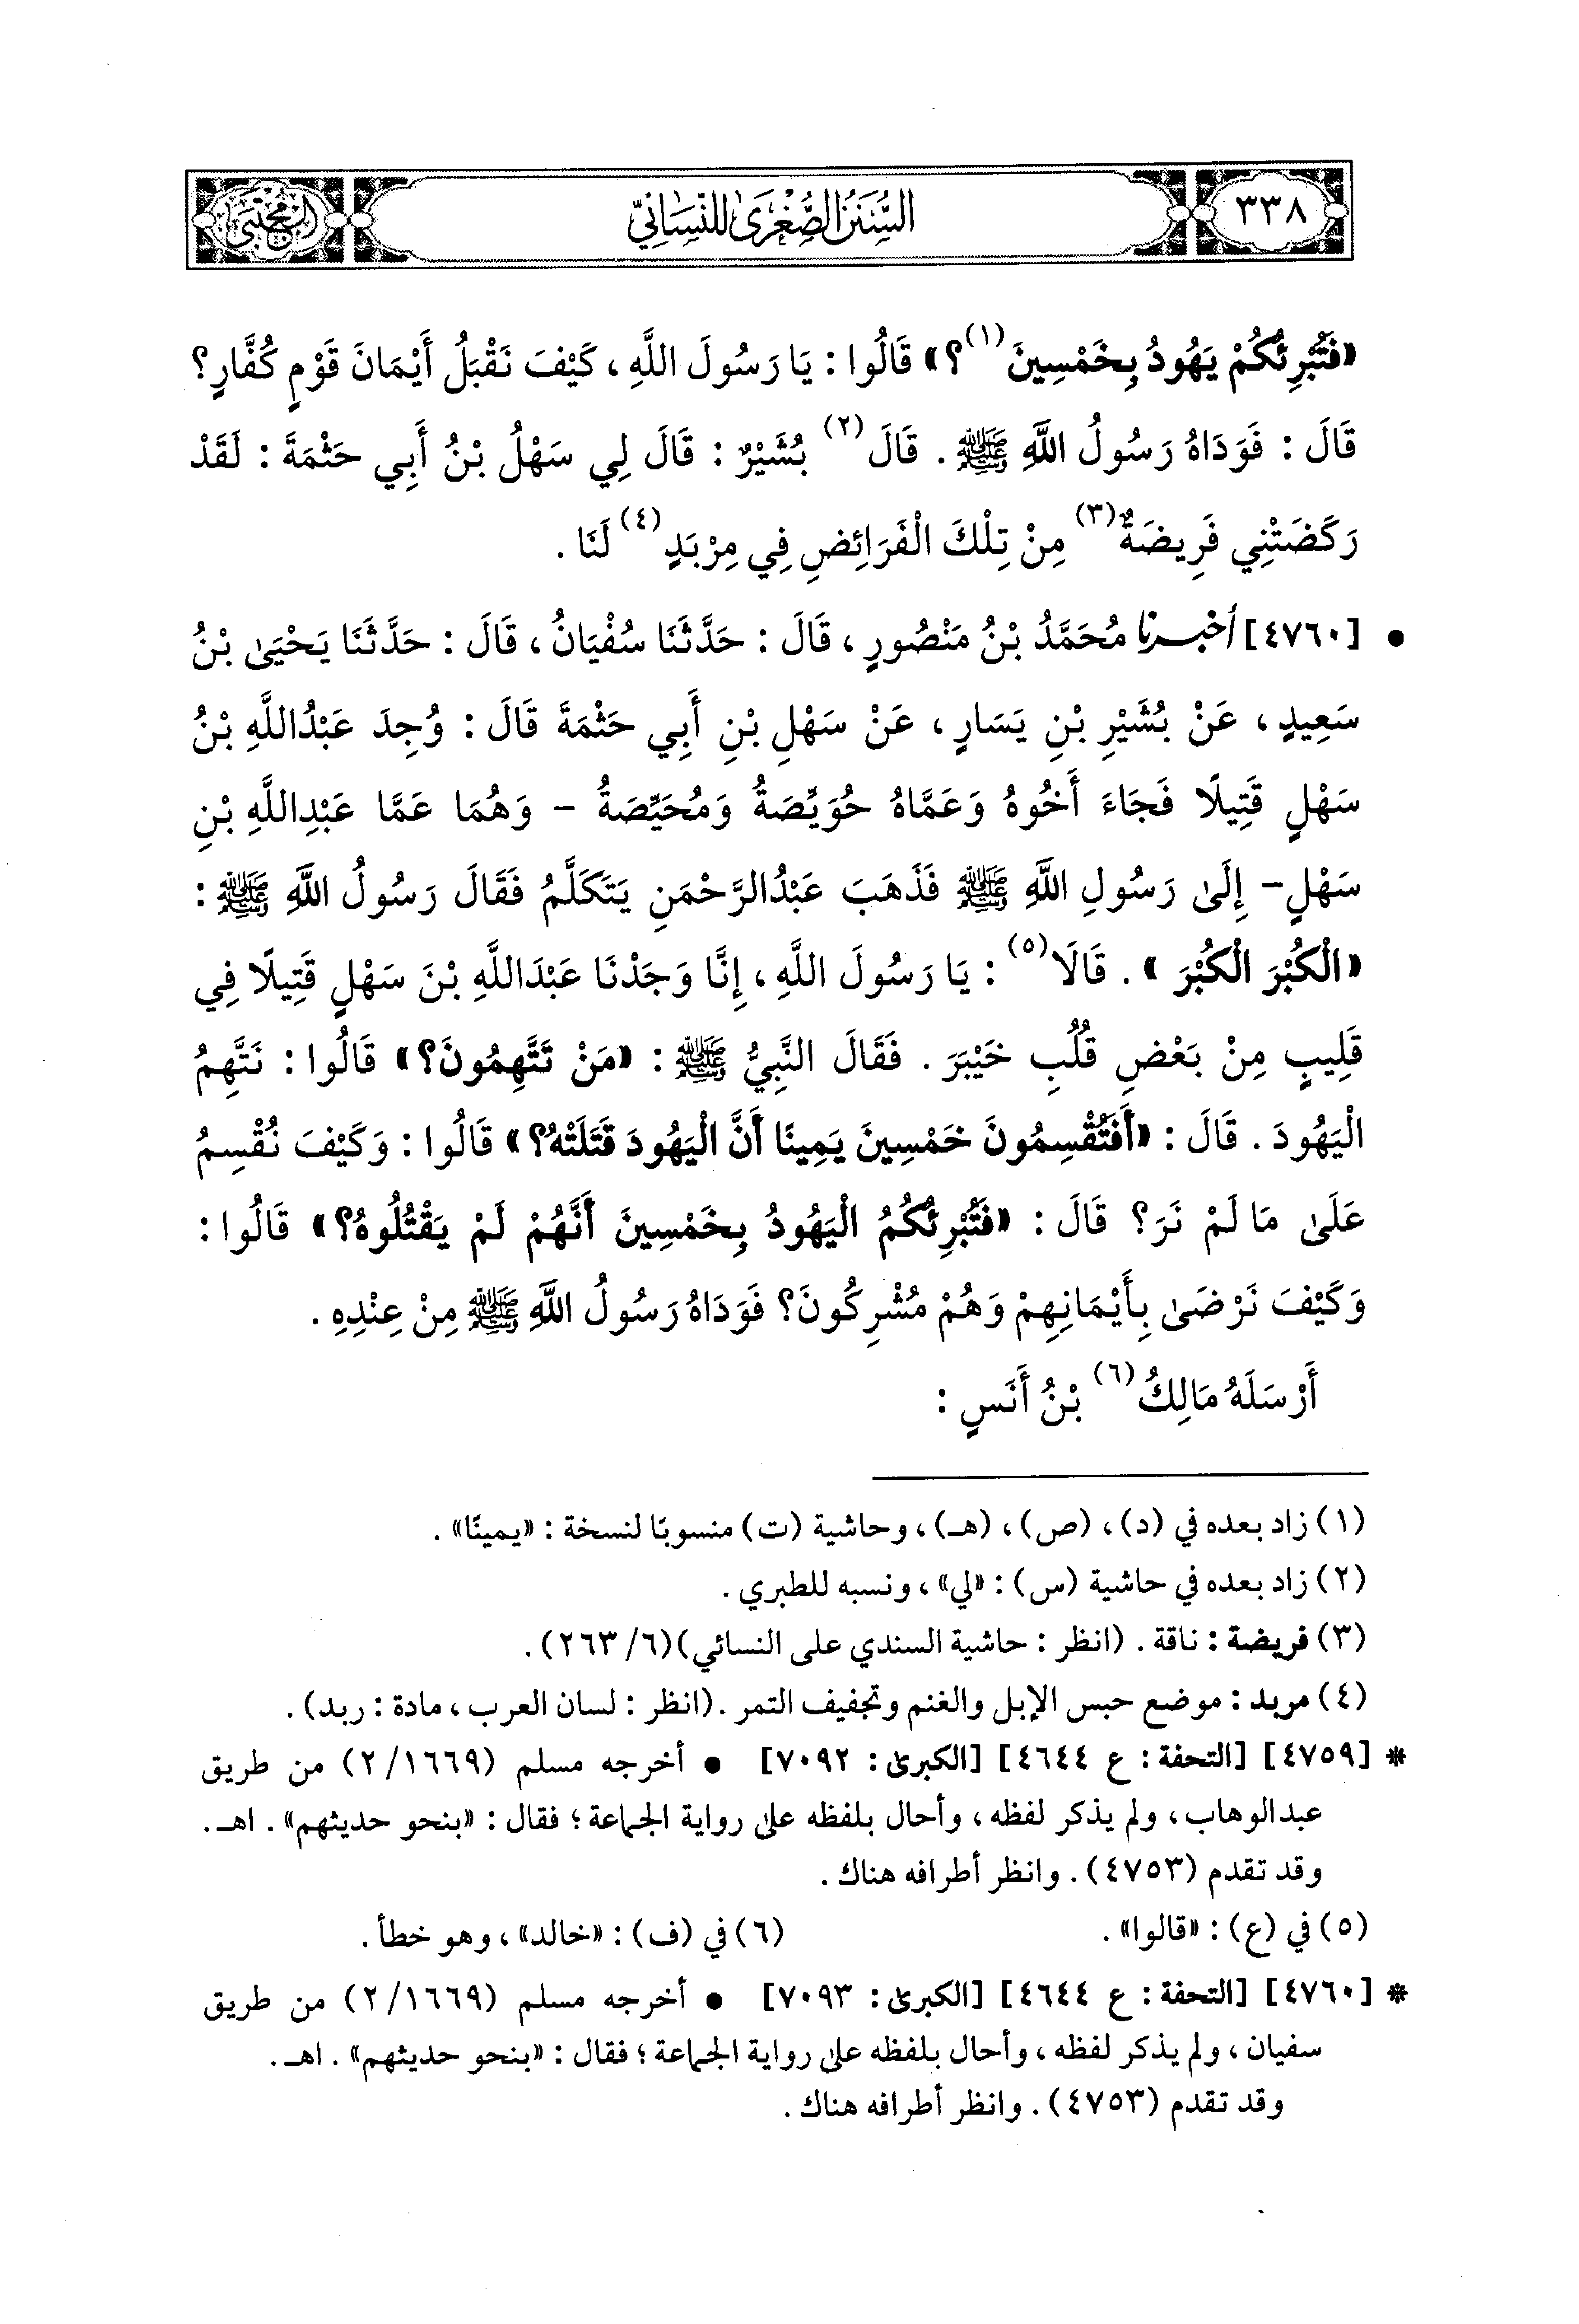 ٣٣٨
السُّنَنُ الصُّغْرَىٰ لِلنَّسَائِيِّ
المجتبى
«فَتُبْرِئُكُمْ يَهُودُ بِخَمْسِينَ(١)؟» قَالُوا : يَا رَسُولَ اللَّهِ ، كَيْفَ نَقْبَلُ أَيْمَانَ قَوْمٍ كُفَّارٍ؟
قَالَ : فَوَدَاهُ رَسُولُ اللَّهِ ﷺ . قَالَ(٢) بُشَيْرٌ : قَالَ لِي سَهْلُ بْنُ أَبِي حَثْمَةَ : لَقَدْ
رَكَضَتْنِي فَرِيضَةٌ(٣) مِنْ تِلْكَ الْفَرَائِضِ فِي مِرْبَدٍ(٤) لَنَا .
• [٤٧٦٠] أخبرنا مُحَمَّدُ بْنُ مَنْصُورٍ ، قَالَ : حَدَّثَنَا سُفْيَانُ ، قَالَ : حَدَّثَنَا يَحْيَىٰ بْنُ
سَعِيدٍ ، عَنْ بُشَيْرِ بْنِ يَسَارٍ ، عَنْ سَهْلِ بْنِ أَبِي حَثْمَةَ قَالَ : وُجِدَ عَبْدُاللَّهِ بْنُ
سَهْلٍ قَتِيلًا فَجَاءَ أَخُوهُ وَعَمَّاهُ حُوَيِّصَةُ وَمُحَيِّصَةُ - وَهُمَا عَمَّا عَبْدِاللَّهِ بْنِ
سَهْلٍ - إِلَىٰ رَسُولِ اللَّهِ ﷺ فَذَهَبَ عَبْدُالرَّحْمَنِ يَتَكَلَّمُ فَقَالَ رَسُولُ اللَّهِ ﷺ :
«الْكُبْرَ الْكُبْرَ» . قَالَا(٥) : يَا رَسُولَ اللَّهِ ، إِنَّا وَجَدْنَا عَبْدَاللَّهِ بْنَ سَهْلٍ قَتِيلًا فِي
قَلِيبٍ مِنْ بَعْضِ قُلُبِ خَيْبَرَ . فَقَالَ النَّبِيُّ ﷺ : «مَنْ تَتَّهِمُونَ؟» قَالُوا : نَتَّهِمُ
الْيَهُودَ . قَالَ : «أَفَتُقْسِمُونَ خَمْسِينَ يَمِينًا أَنَّ الْيَهُودَ قَتَلَتْهُ؟» قَالُوا : وَكَيْفَ نُقْسِمُ
عَلَىٰ مَا لَمْ نَرَ؟ قَالَ : «فَتُبْرِئُكُمُ الْيَهُودُ بِخَمْسِينَ أَنَّهُمْ لَمْ يَقْتُلُوهُ؟» قَالُوا :
وَكَيْفَ نَرْضَىٰ بِأَيْمَانِهِمْ وَهُمْ مُشْرِكُونَ؟ فَوَدَاهُ رَسُولُ اللَّهِ ﷺ مِنْ عِنْدِهِ .
أَرْسَلَهُ مَالِكُ(٦) بْنُ أَنَسٍ :
(١) زاد بعده في (د) ، (ص) ، (هـ) ، وحاشية (ت) منسوبًا لنسخة : «يمينًا» .
(٢) زاد بعده في حاشية (س) : «لي» ، ونسبه للطبري .
(٣) فريضة : ناقة . (انظر : حاشية السندي على النسائي) (٦/ ٢٦٣) .
(٤) مربد : موضع حبس الإبل والغنم وتجفيف التمر . (انظر : لسان العرب ، مادة : ربد) .
* [٤٧٥٩] [التحفة : ع ٤٦٤٤] [الكبرىٰ : ٧٠٩٢] • أخرجه مسلم (٢/١٦٦٩) من طريق
عبدالوهاب ، ولم يذكر لفظه ، وأحال بلفظه علىٰ رواية الجماعة ؛ فقال : «بنحو حديثهم» . اهـ .
وقد تقدم (٤٧٥٣) . وانظر أطرافه هناك .
(٥) في (ع) : «قالوا» .
(٦) في (ف) : «خالد» ، وهو خطأ .
* [٤٧٦٠] [التحفة : ع ٤٦٤٤] [الكبرىٰ : ٧٠٩٣] • أخرجه مسلم (٢/١٦٦٩) من طريق
سفيان ، ولم يذكر لفظه ، وأحال بلفظه علىٰ رواية الجماعة ؛ فقال : «بنحو حديثهم» . اهـ .
وقد تقدم (٤٧٥٣) . وانظر أطرافه هناك .